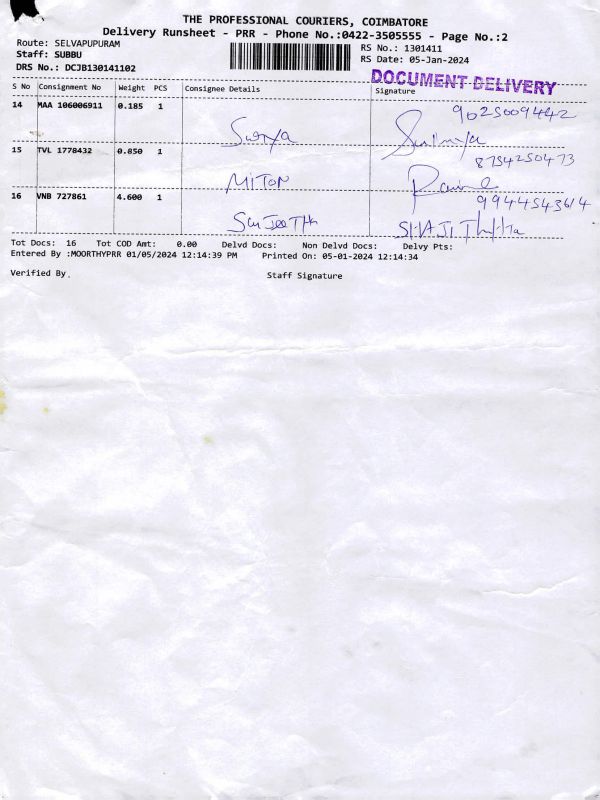 THE PROFESSIONAL COURIERS, COIMBATORE
Delivery Runsheet - PRR - Phone No.:0422-3505555 - Page No.:2
Route: SELVAPUPURAM
RS No.: 1301411
Staff: SUBBU
RS Date: 05-Jan-2024
DRS No.: DCJB130141102
DOCUMENT DELIVERY
S No Consignment No Weight PCS Consignee Details Signature
14 MAA 106006911 0.185 1
9025009442
Surya
15 TVL 1778432 0.850 1
8754250473
MITON
16 VNB 727861 4.600 1
9944543614
SanJeeTh
Tot Docs: 16 Tot COD Amt: 0.00 Delvd Docs: Non Delvd Docs: Delvy Pts:
Entered By :MOORTHYPRR 01/05/2024 12:14:39 PM Printed On: 05-01-2024 12:14:34
Verified By. Staff Signature